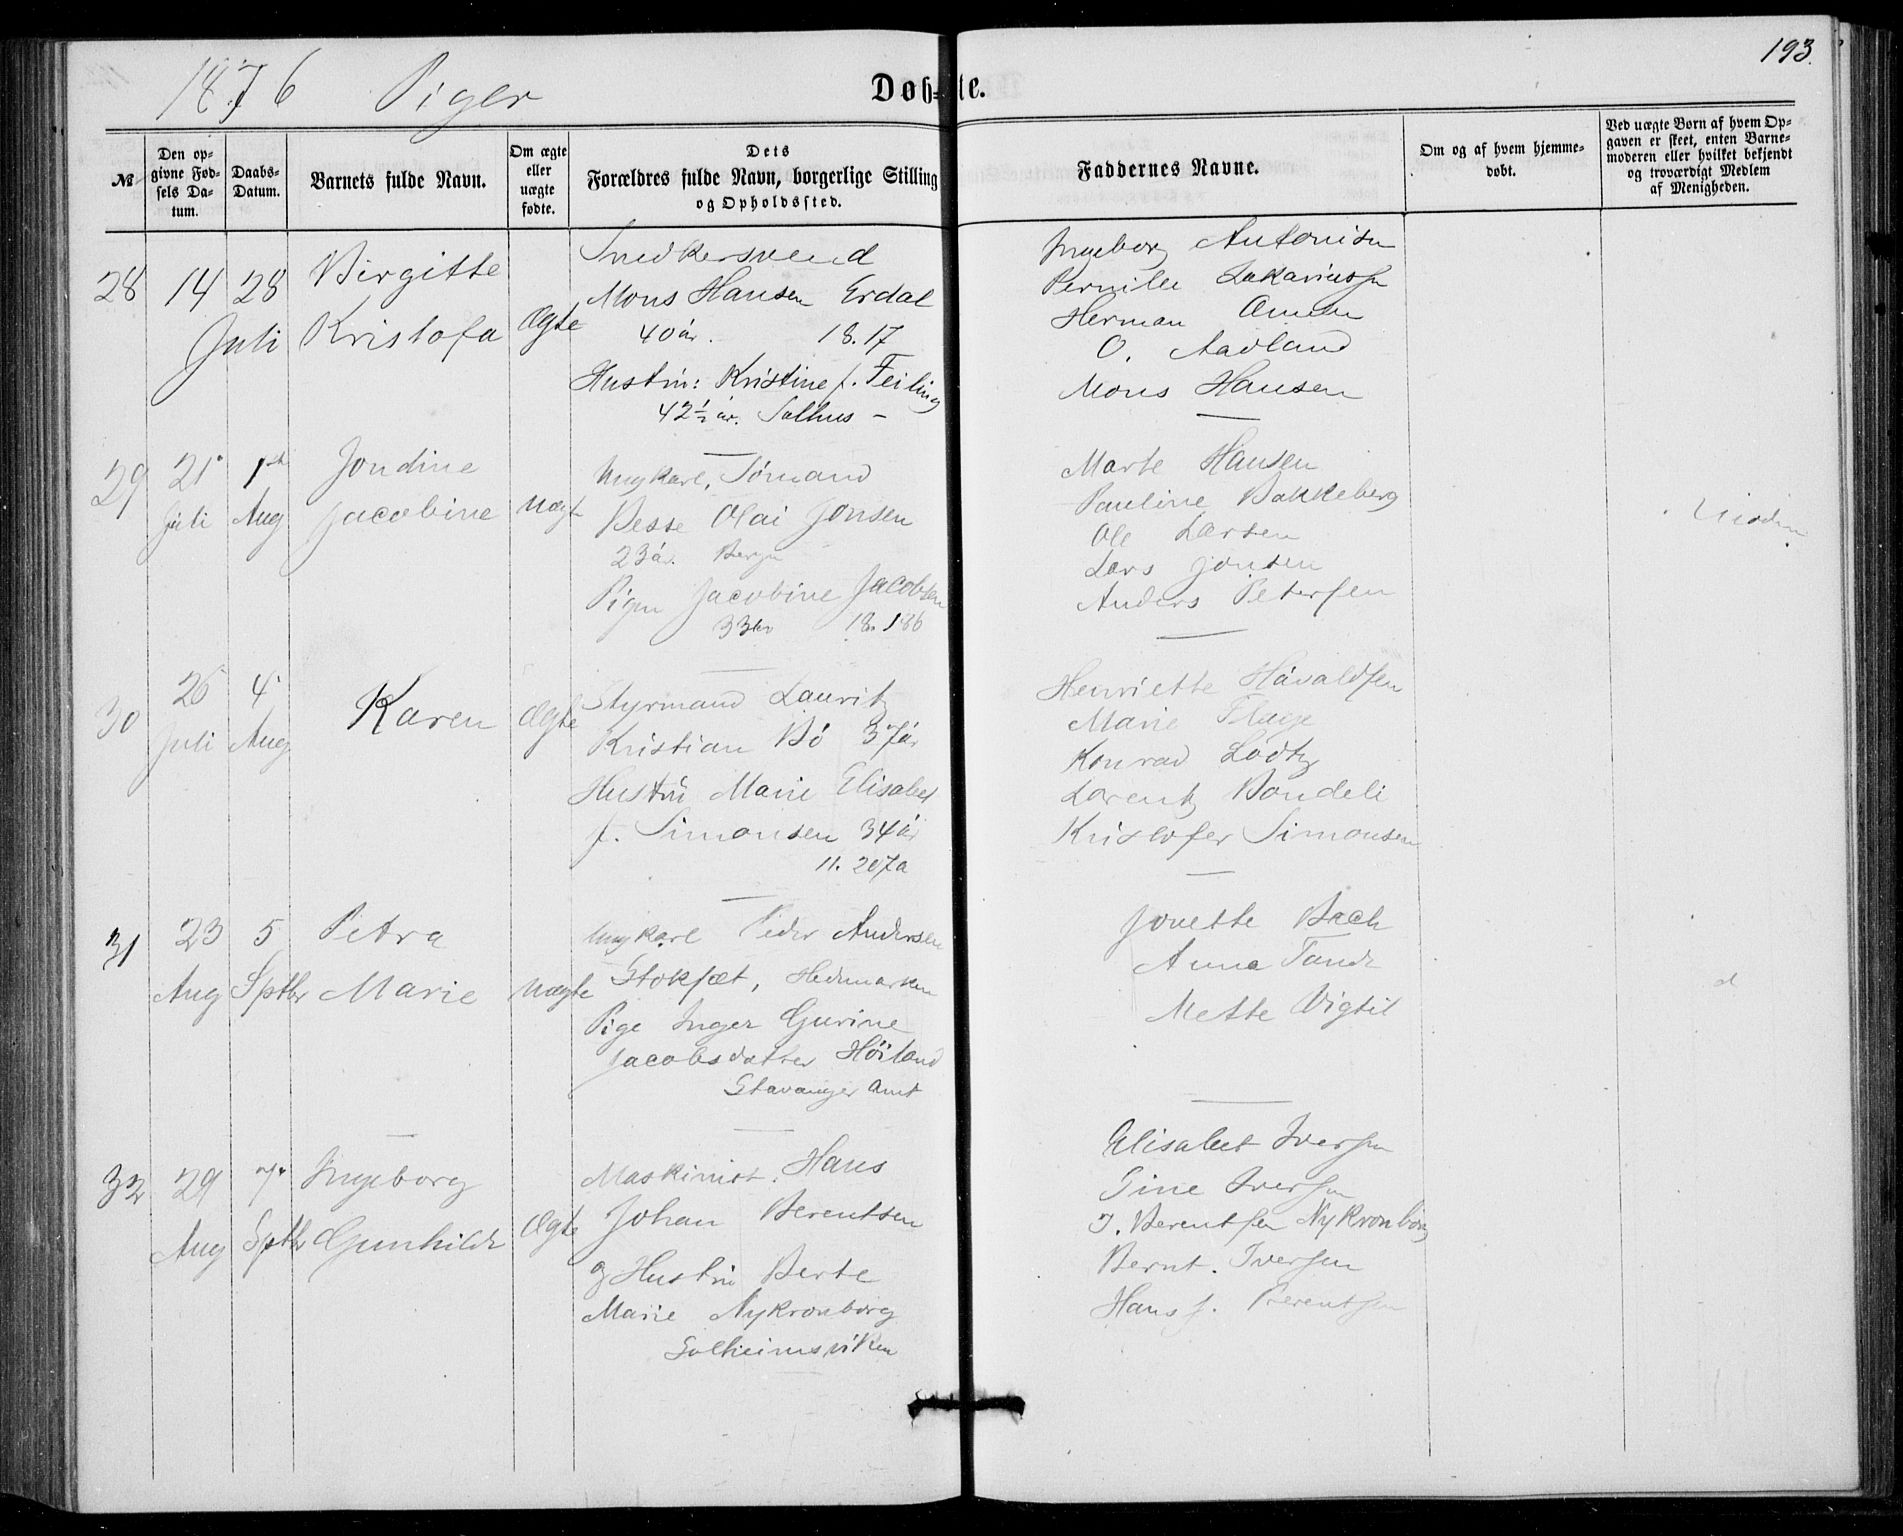 193.
1876 Piger
Døbte.
№
Den opgivne Fødsels Datum.
Daabs-Datum.
Barnets fulde Navn.
Om ægte eller uægte fødte.
Dets Forældres fulde Navn, borgerlige Stilling og Opholdssted.
Faddernes Navne.
Om og af hvem hjemmedøbt.
Ved uægte Børn af hvem Opgaven er skeet, enten Barnemoderen eller hvilket bekjendt og troværdigt Medlem af Menigheden.
28
14 Juli
28
Birgitte
Kristofa
Ægte
Snedkersvend
Mons Hansen Erdal
40 år. 18.17
Hustru: Kristine f. Feiling
42½ år. Salhus –
Ingeborg Antonisen
Pernille Zakariassen
Herman
O. Aadland
Mons Hansen
29
21 juli
1ste Aug
Jondine
Jacobine
Uægt
Ungkarl, Sømand
Besse Olai Jonsen
23 år. Bergen
Pigen Jacobine Jacobsen
33 år 18.186
Marte Hansen
Pauline Bakkeberg
Ole Larsen
Lars Jonsen
Anders Petersen
30
26 Juli
4 Aug
Karen
Ægte
Styrmand Lauritz
Kristian Bö 37 år
Hustru Marie Elisabet
f. Simonsen 34 år
11. 207a
Henriette Håvaldsen
Marie Flage
Konrad Lödtz
Lorentz Bondeli
Kristofer Simonsen
31
23 Aug
5 Sptbr
Petra
Marie
Uægte
Ungkarl Peder Andersen
Stokset, Hedemarken
Pige Inger Gurine
Jacobsdatter Höiland
Stavanger Amt
Jonette Bach
Anna Tande
Mette Vigtil
d
32
29 Aug
7 Sptbr
Ingeborg
Gunhilde
Ægte
Maskinist. Hans
Johan Berentsen
og Hustru Berte
Marie Nykronborg
Solheimsviken
Elisabet Iversen
Gine Iversen
J. Berentsen Nykronborg
Bernt. Iversen
Hans J. Berentsen